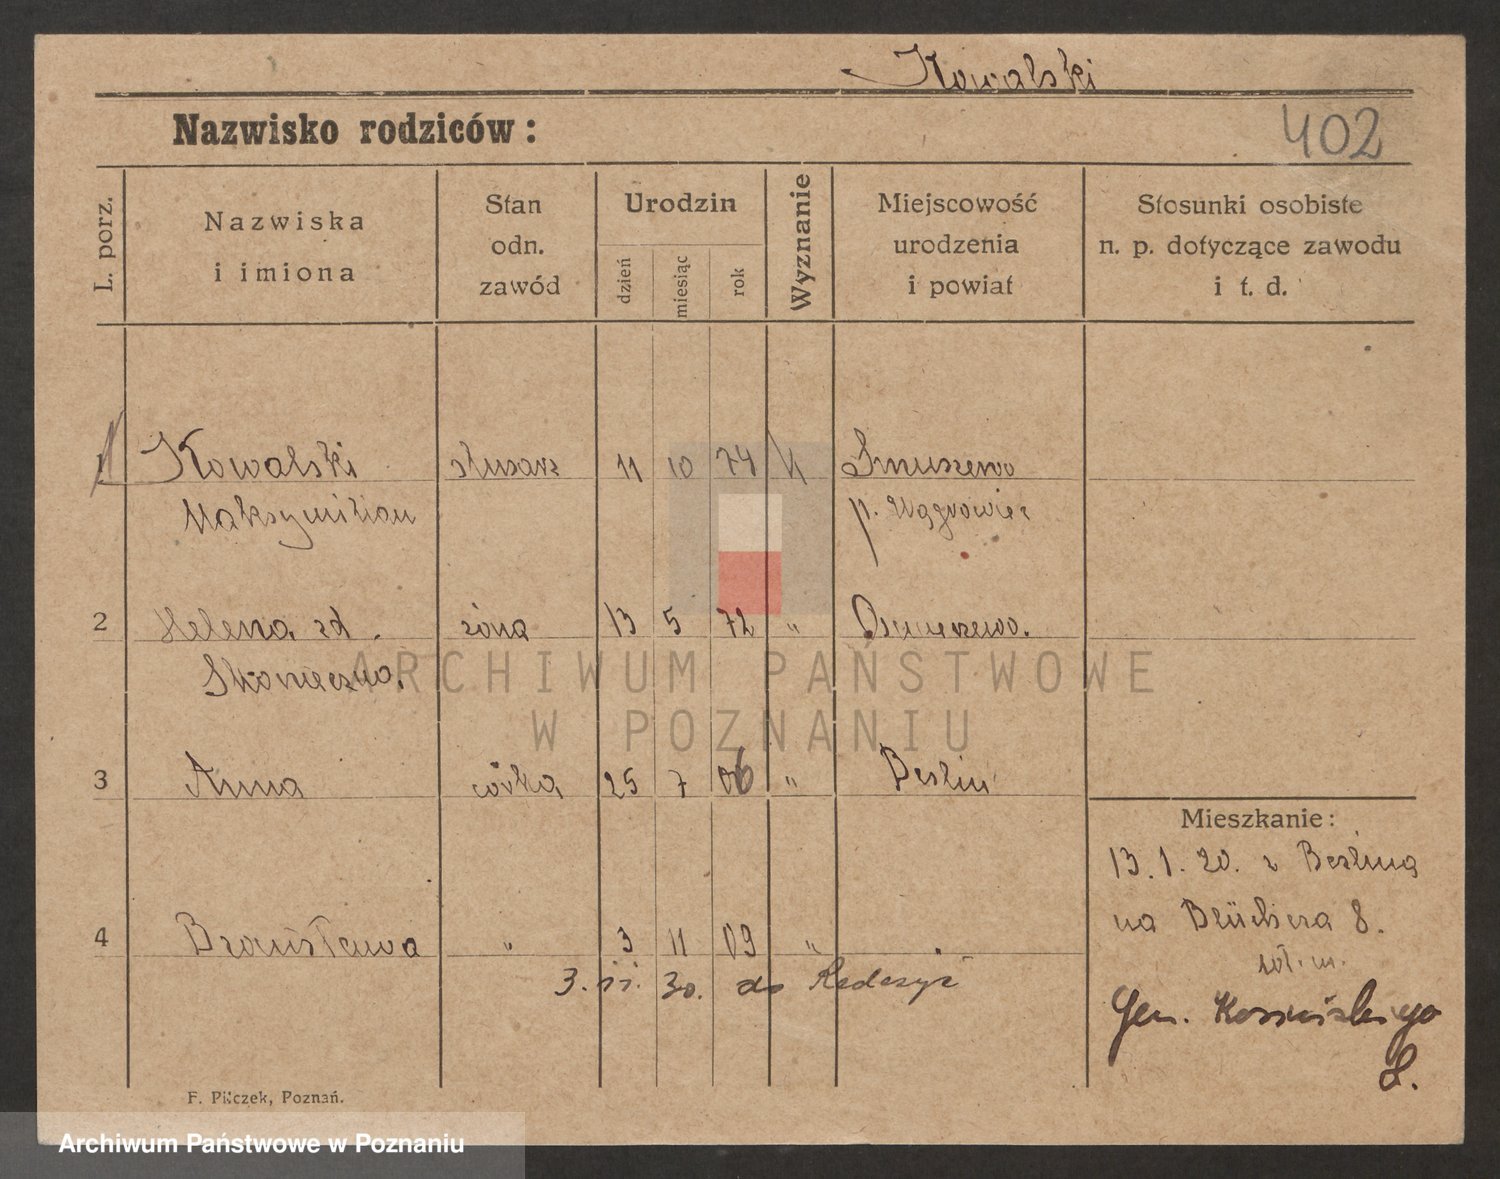 Kowalski
Nazwisko rodziców:
402
L. porz.
Nazwiska
i imiona
Stan
odn.
zawód
Urodzin
dzień
miesiąc
rok
Wyznanie
Miejscowość
urodzenia
i powiat
Stosunki osobiste
n. p. dotyczące zawodu
i t. d.
1 Kowalski ślusarz 11 10 74 k
Maksymilian p. Wągrowiec
2 Helena zd. żona 13 5 72 "
3 Anna córka 25 7 06 " Berlin
Mieszkanie:
13.1.20. z Berlina
na Blüchera 8.
4 Bronisława " 3 11 09 " "
3.11.30. do
Gen. Kosińskiego
8.
F. Pilczek, Poznań.
ARCHIWUM PAŃSTWOWE
W POZNANIU
Archiwum Państwowe w Poznaniu